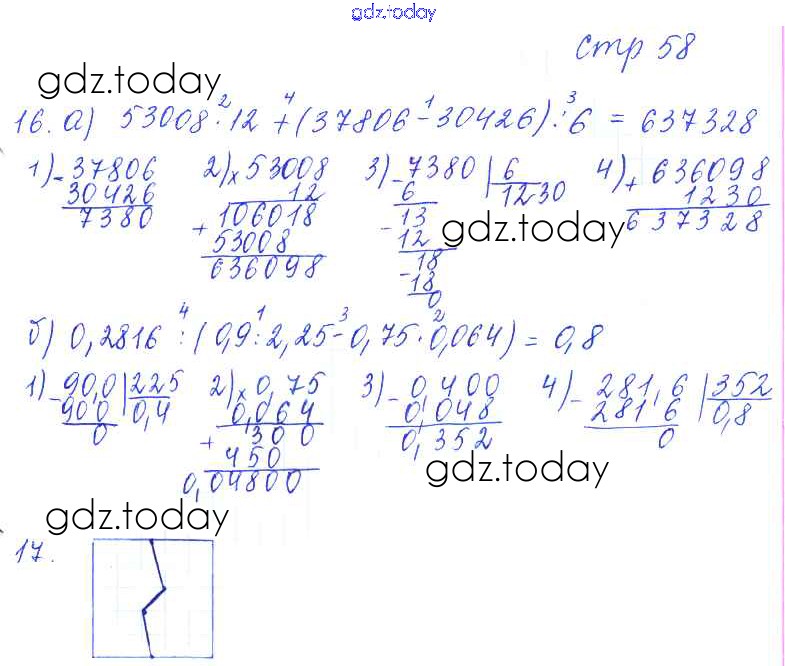 gdz.today
стр 58
gdz.today
16. а) 53008 · 12 + (37806 - 30426) : 6 = 637328
2 4 1 3
1) - 37806 2) x 53008 3) - 7380 | 6 4) + 636098
30426 12 6 1230 1230
7380 + 106018 - 13 637328
53008 12 gdz.today
636098 - 18
18
0
б) 0,2816 : (0,9 : 2,25 - 0,75 · 0,064) = 0,8
4 1 3 2
1) - 90,0 | 225 2) x 0,75 3) - 0,400 4) - 281,6 | 352
900 0,4 0,064 0,048 2816 0,8
0 + 300 0,352 0
450 gdz.today
0,04800
gdz.today
17.